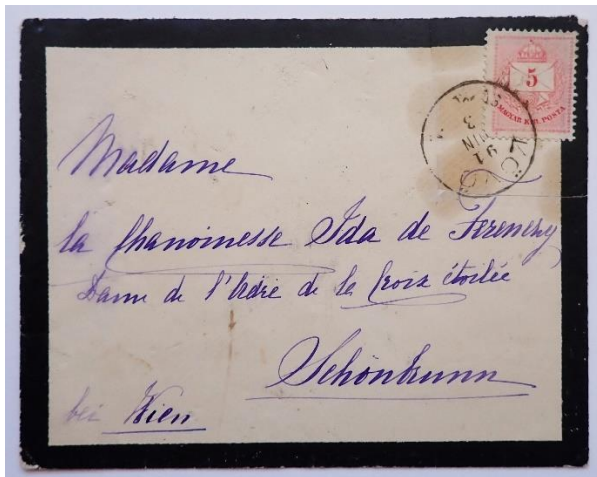 5
MAGYAR KIR. POSTA
91
JUN
3
Madame
la Chanoinesse Ida de Ferenczy
Dame de l'Ordre de la Croix étoilée
Schönbrunn
bei Wien